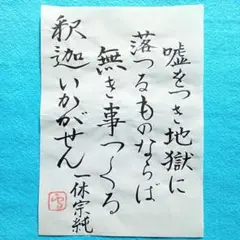 嘘をつき地獄に
落つるものならば
無き事つくる
釈迦いかがせん
一休宗純